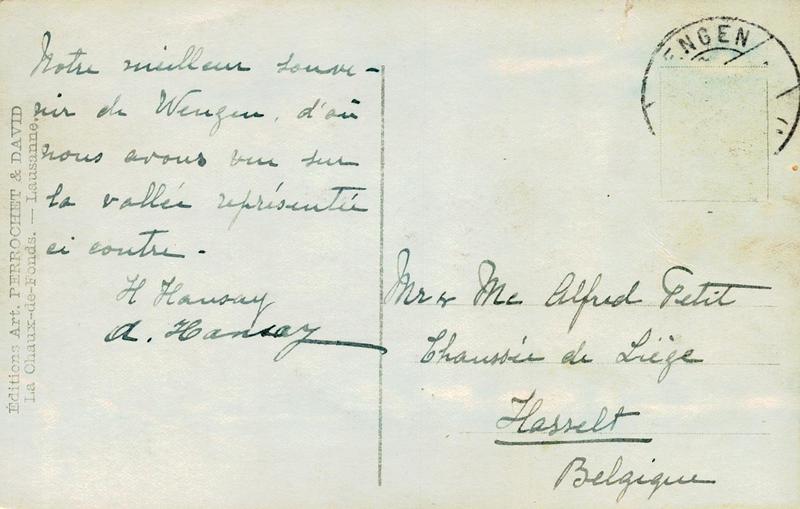 Notre meilleur souve-
nir de Wengen, d'où
nous avons vue sur
la vallée représentée
ci contre -
H Hansay
A. Hansay
ENGEN
Mr & Me Alfred Petit
Chaussée de Liége
Hasselt
Belgique
Éditions Art. PERROCHET & DAVID
La Chaux-de-Fonds. — Lausanne.